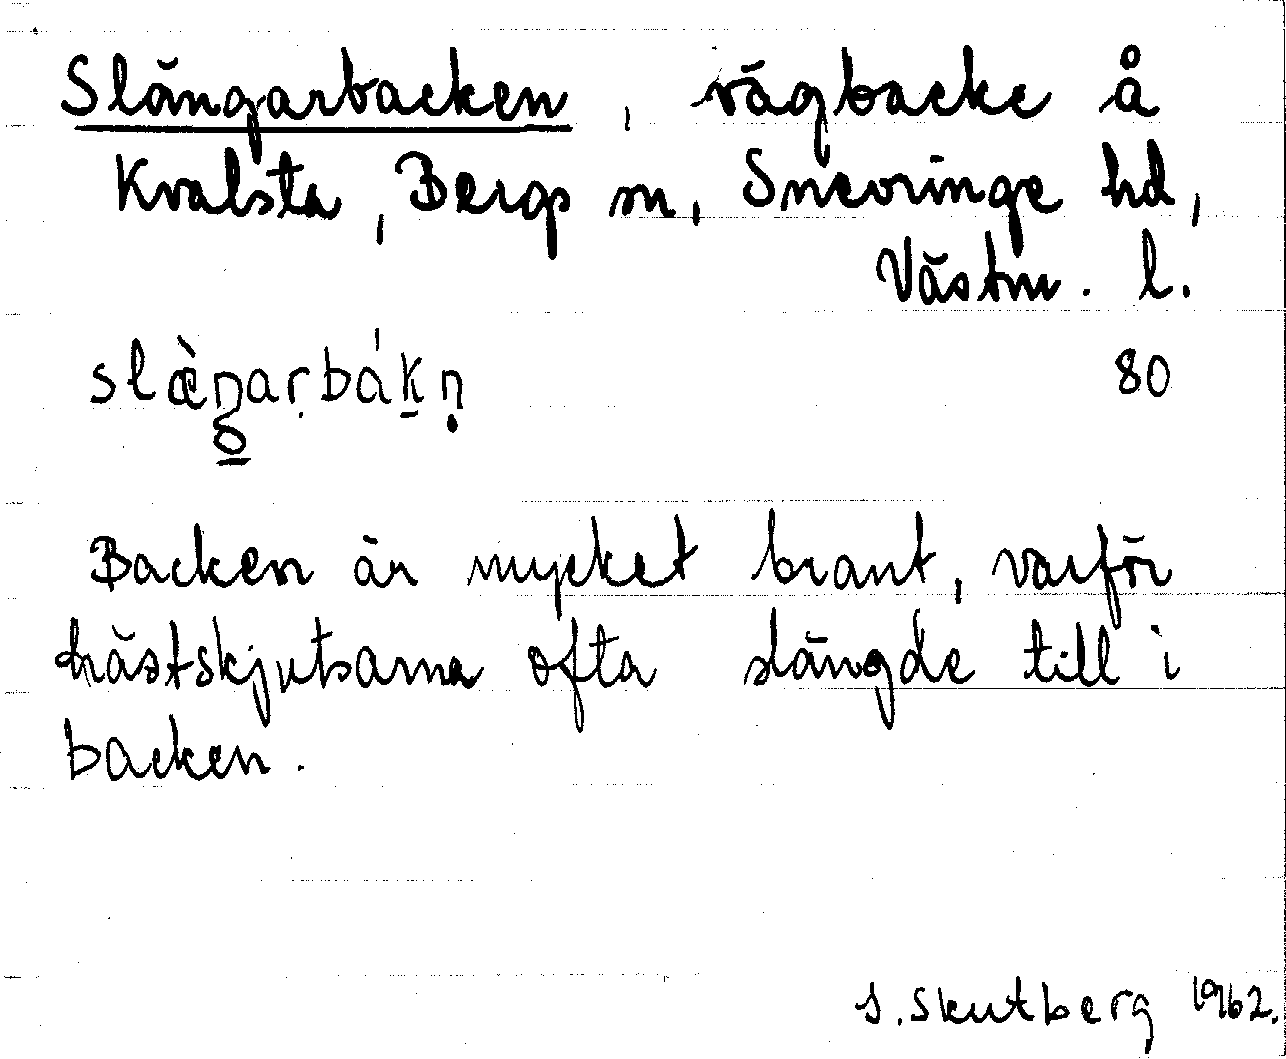 Slängarbacken, vägbacke å
Kvalsta, Bergs sn, Snevringe hd,
Västm. l.
slæ̀ŋarbákṇ 80
Backen är mycket brant, varför
hästskjutsarna ofta slängde till i
backen.
S. Skutberg 1962.